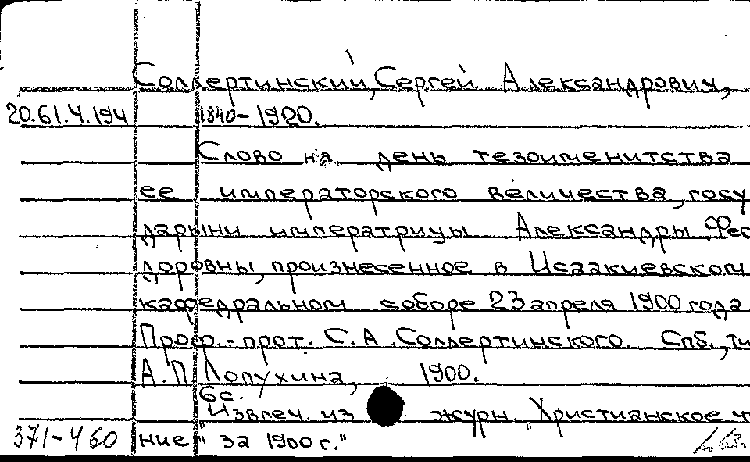 Соллертинский, Сергей Александрович,
20.61.4.194 1840-1900.
Слово на день тезоименитства
ее императорского величества, госу
дарыни императрицы Александры Фео
доровны, произнесенное в Исаакиевском
кафедральном соборе 23 апреля 1900 года
Проф.-прот. С.А. Соллертинского. Спб., ти
А.П. Лопухина, 1900.
6с.
"Извлеч. из журн. "Христианское ч
371-460 ние" за 1900 г."